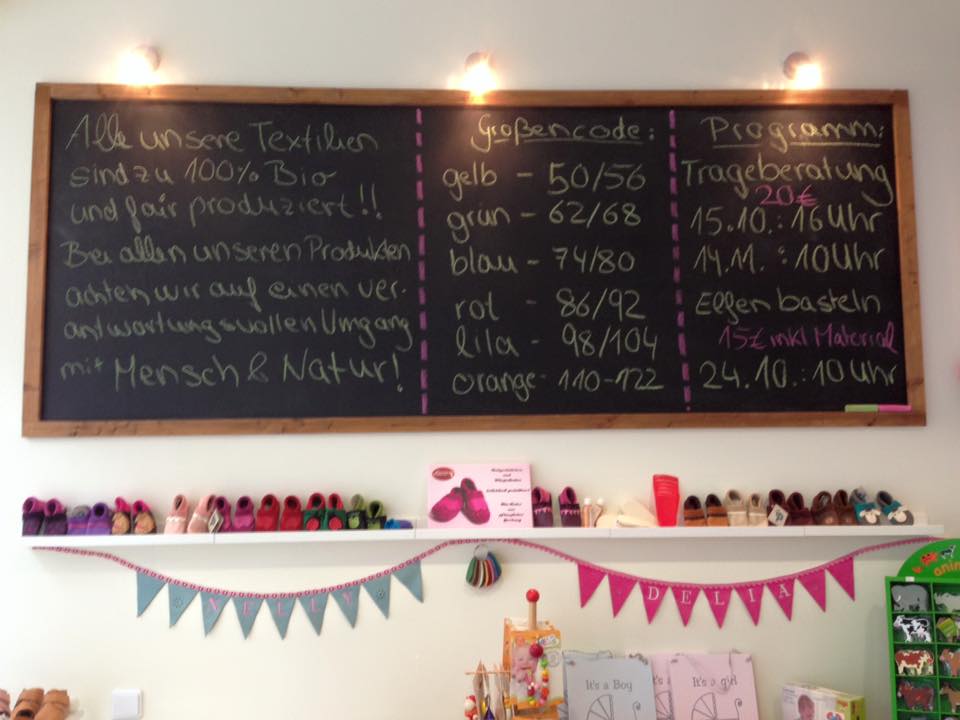 Alle unsere Textilien
sind zu 100% Bio
und fair produziert!!
Bei allen unseren Produkten
achten wir auf einen ver-
antwortungsvollen Umgang
mit Mensch & Natur!
Größencode:
gelb - 50/56
grün - 62/68
blau - 74/80
rot - 86/92
lila - 98/104
orange - 110-122
Programm:
Trageberatung
20€
15.10.: 16 Uhr
14.11. : 10 Uhr
Elfen basteln
15€ inkl Material
24.10.: 10 Uhr
NELLY
DELIA
It's a Boy
It's a girl